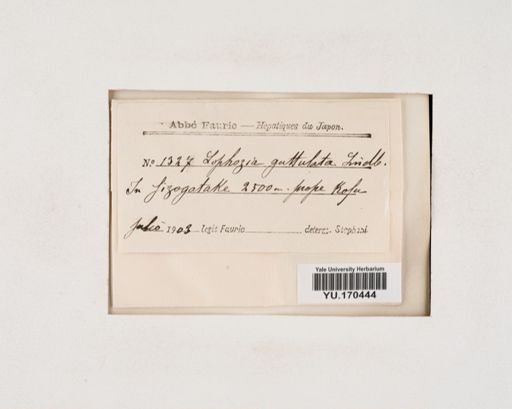 Abbé Faurie — Hepatiques du Japon.
No 1327 Lophozia guttulata Lindb.
In Jizogatake 2500 m. prope Kofu
julio 1903 legit Faurie determ. Stephani
Yale University Herbarium
YU.170444